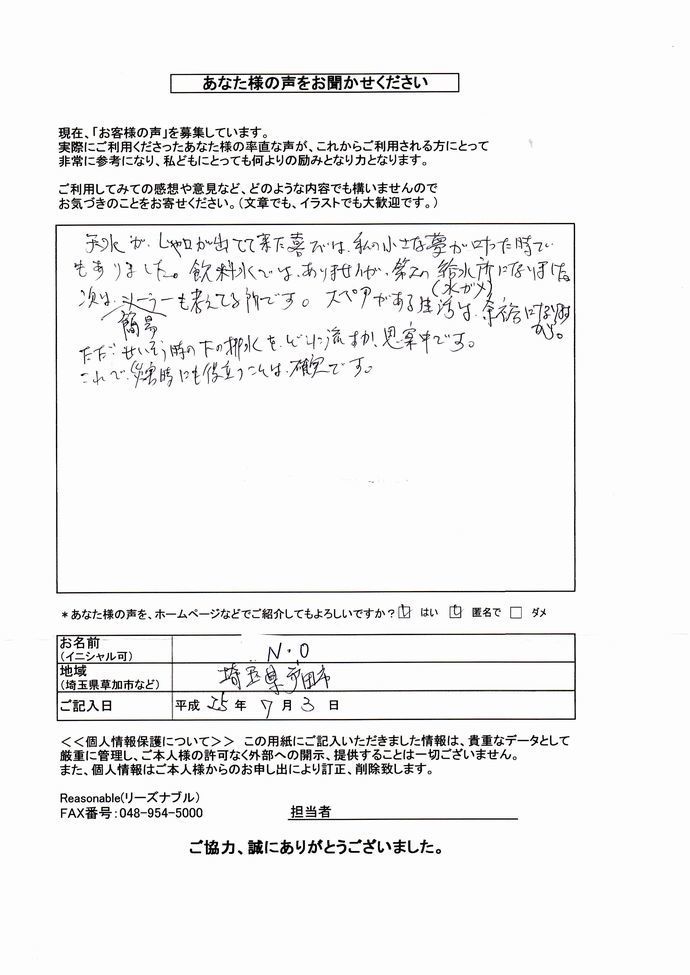 あなた様の声をお聞かせください
現在、「お客様の声」を募集しています。
実際にご利用くださったあなた様の率直な声が、これからご利用される方にとって
非常に参考になり、私どもにとっても何よりの励みとなり力となります。
ご利用してみての感想や意見など、どのような内容でも構いませんので
お気づきのことをお寄せください。(文章でも、イラストでも大歓迎です。)
水が、じゃ口が出てて来た喜びは、私の小さな夢が叶った時で
もありました。飲料水では、ありませんが、第2の給水所になりました
(水ガメ)
次は、ソーラーも考えてる所です。スペアがある生活は、余裕になります
から。
簡易
ただ、せいそう時の下の排水を、どこに流すか、思案中です。
これで、災害時にも役立つことは、確実です。
*あなた様の声を、ホームページなどでご紹介してもよろしいですか? はい 匿名で ダメ
お名前
(イニシャル可) N・O
地域
(埼玉県草加市など) 埼玉県戸田市
ご記入日 平成 25 年 7 月 3 日
<<個人情報保護について>> この用紙にご記入いただきました情報は、貴重なデータとして
厳重に管理し、ご本人様の許可なく外部への開示、提供することは一切ございません。
また、個人情報はご本人様からのお申し出により訂正、削除致します。
Reasonable(リーズナブル)
FAX番号:048-954-5000 担当者
ご協力、誠にありがとうございました。